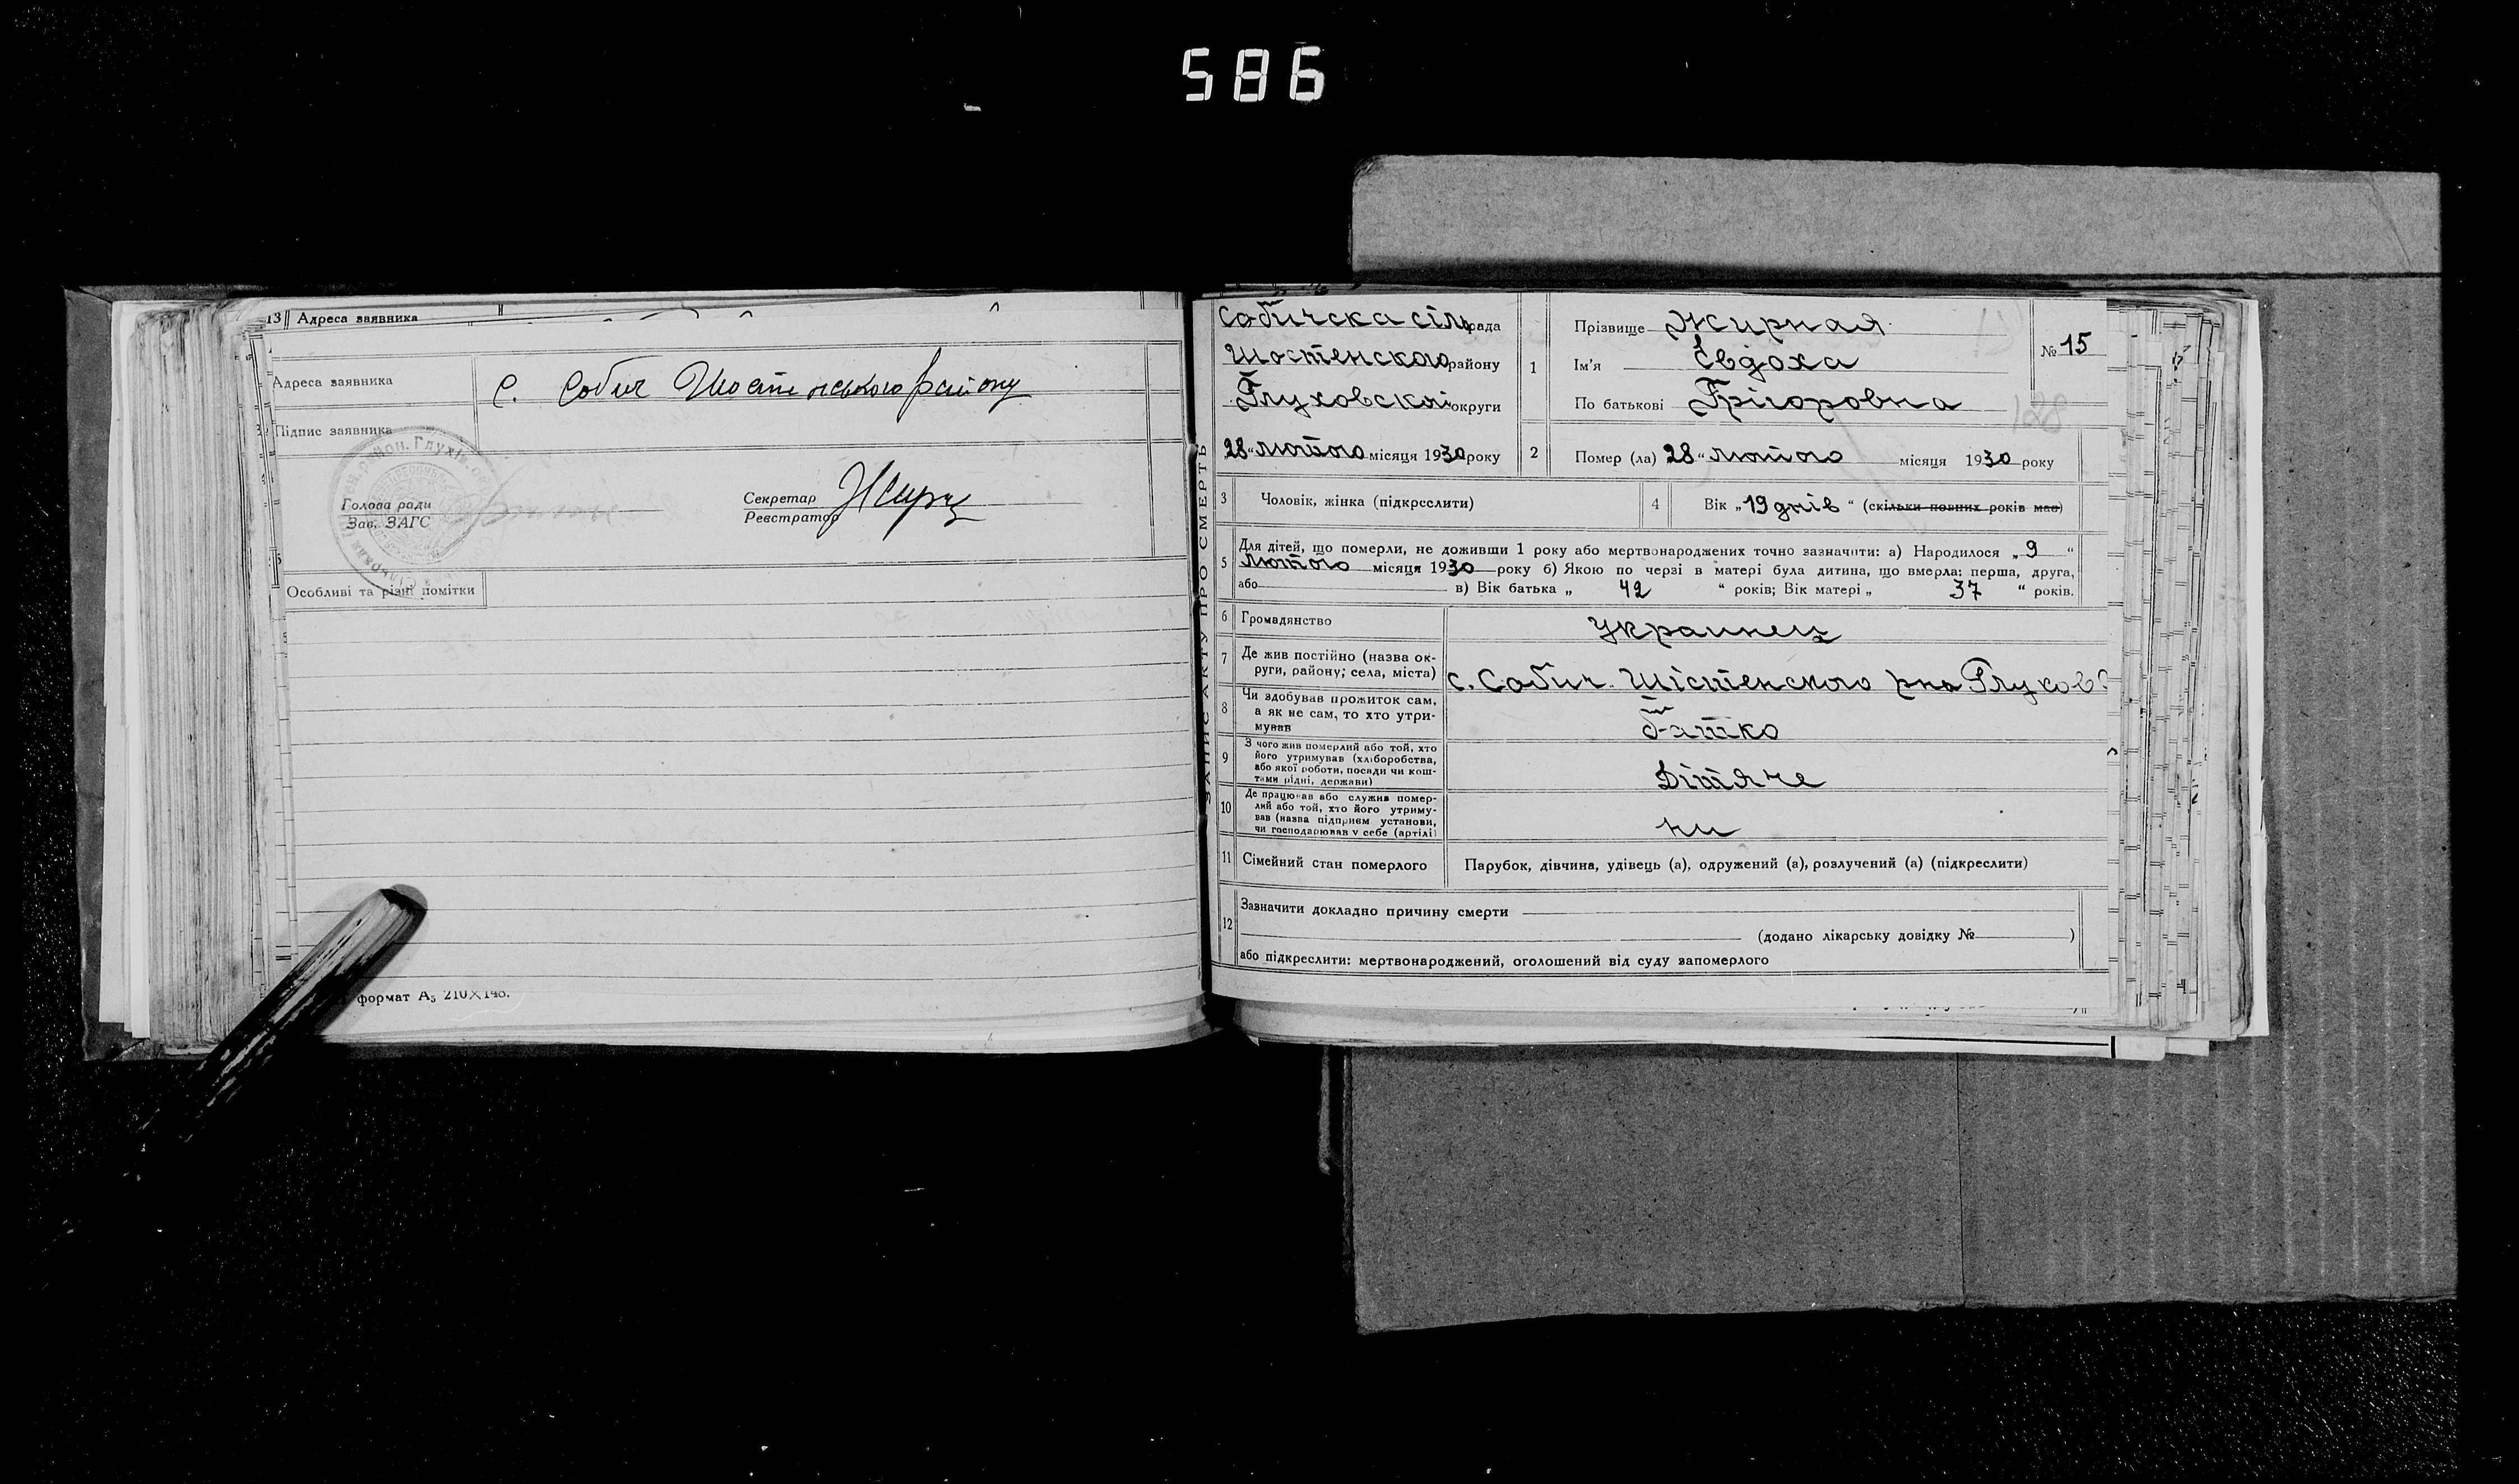 586
13 Адреса заявника
Адреса заявника С. Собич Шостенського району
Підпис заявника
Голова ради
Зав. ЗАГС
Секретар
Реєстратор
Особливі та різні помітки
формат А5 210×148.
ЗАПИС АКТУ ПРО СМЕРТЬ
Собичска сільрада
Шостенского району
Глуховскоі округи
28 „ лютого місяця 1930 року
1 Прізвище Жирная
Ім'я Євдоха
По батькові Грігоровна
№ 15
128
2 Помер (ла) 28 „ лютого місяця 1930 року
3 Чоловік, жінка (підкреслити)
4 Вік „ 19 днів “ (скільки повних років мав)
5 Для дітей, що померли, не доживши 1 року або мертвонароджених точно зазначити: а) Народилося „ 9 “
Лютого місяця 1930 року б) Якою по черзі в матері була дитина, що вмерла: перша, друга,
або в) Вік батька „ 42 “ років; Вік матері „ 37 “ років.
6 Громадянство Украинец
7 Де жив постійно (назва округи, району; села, міста) с. Собич Шістенского рна Глухов
8 Чи здобував прожиток сам, а як не сам, то хто утримував батко
9 З чого жив померлий або той, хто його утримував (хліборобства, або якої роботи, посади чи коштами рідні, держави) Дітяче
10 Де працював або служив померлий або той, хто його утримував (назва підприєм установи, чи господарював у себе (артілі)
11 Сімейний стан померлого Парубок, дівчина, удівець (а), одружений (а), розлучений (а) (підкреслити)
12 Зазначити докладно причину смерти
(додано лікарську довідку № )
або підкреслити: мертвонароджений, оголошений від суду запомерлого